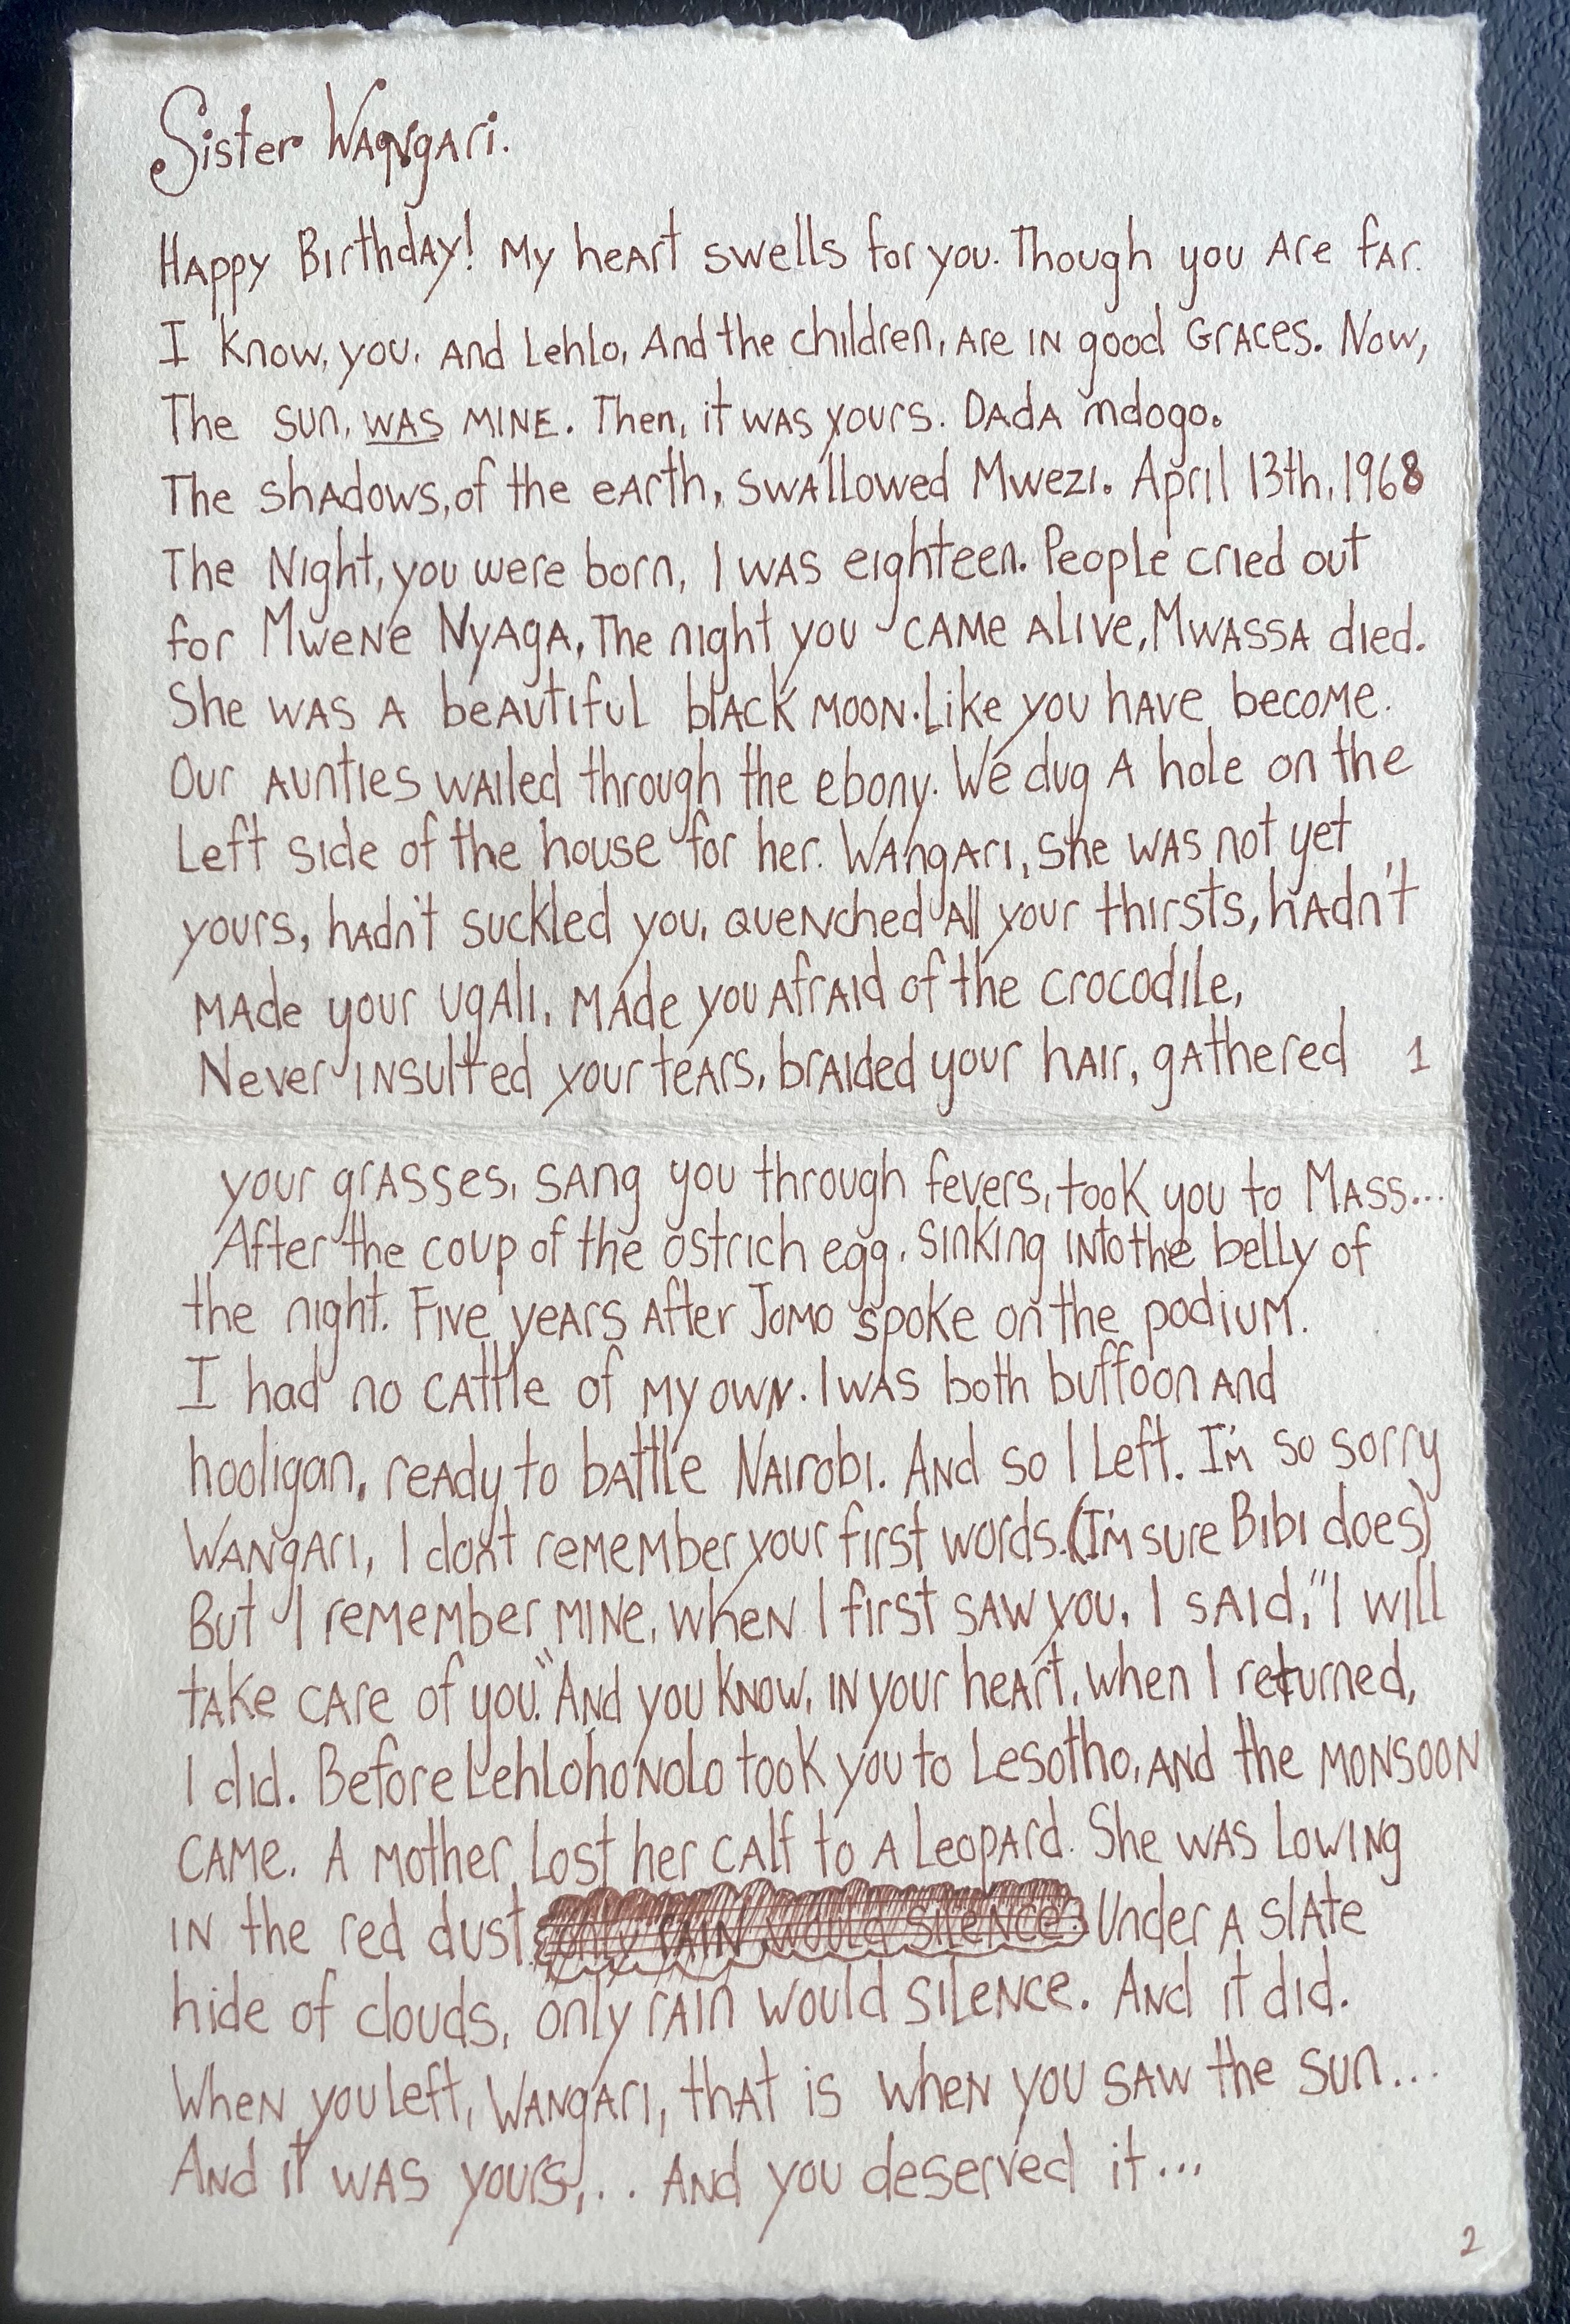 Sister Wangari.
Happy Birthday! My heart swells for you. Though you are far.
I know, you, and Lehlo, and the children, are in good graces. Now,
The sun, was mine. Then, it was yours. Dada mdogo.
The shadows, of the earth, swallowed Mwezi. April 13th, 1968
The Night, you were born, I was eighteen. People cried out
for Mwene Nyaga, The night you came alive, Mwassa died.
She was a beautiful black moon. Like you have become.
Our aunties wailed through the ebony. We dug a hole on the
Left side of the house for her. Wangari, she was not yet
yours, hadn't suckled you, quenched all your thirsts, hadn't
made your ugali, made you afraid of the crocodile,
Never insulted your tears, braided your hair, gathered 1
your grasses, sang you through fevers, took you to Mass...
After the coup of the ostrich egg, sinking into the belly of
the night. Five years after Jomo spoke on the podium.
I had no cattle of my own. I was both buffoon and
hooligan, ready to battle Nairobi. And so I left. I'm so sorry
Wangari, I don't remember your first words. (I'm sure Bibi does)
But I remember mine, when I first saw you, I said, "I will
take care of you." And you know, in your heart, when I returned,
I did. Before Lehlohonolo took you to Lesotho, and the monsoon
came. A mother lost her calf to a leopard. She was lowing
in the red dust. only rain would silence. Under a slate
hide of clouds, only rain would silence. And it did.
When you left, Wangari, that is when you saw the sun...
And it was yours,.. And you deserved it...
2